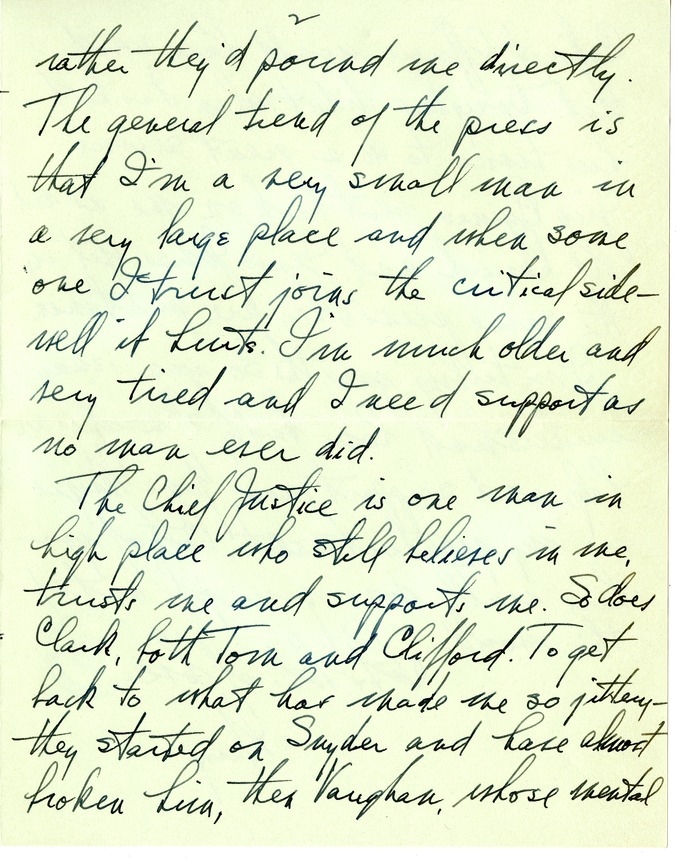 2
rather they'd pound me directly.
The general trend of the press is
that I'm a very small man in
a very large place and when some
one I trust joins the critical side—
well it hurts. I'm much older and
very tired and I need support as
no man ever did.
The Chief Justice is one man in
high place who still believes in me,
trusts me and supports me. So does
Clark, both Tom and Clifford. To get
back to what has made me so jittery—
they started on Snyder and have almost
broken him, then Vaughan, whose mental